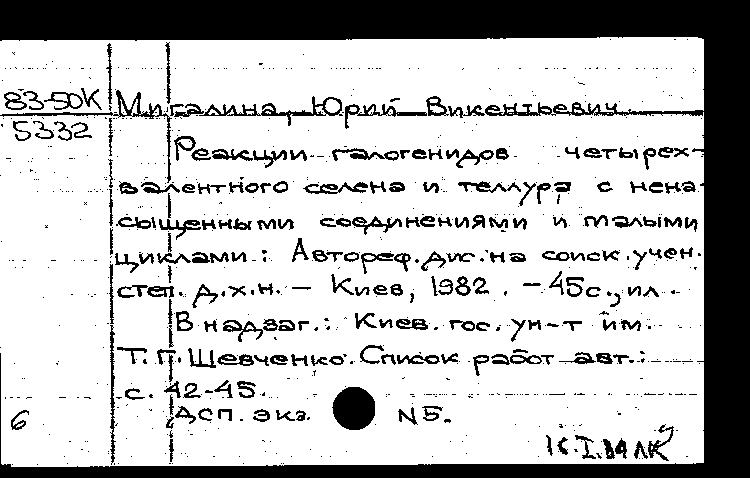 83-50К Мигалина, Юрий Викентьевич
5332
Реакции галогенидов четырех-
валентного селена и теллура с нена-
сыщенными соединениями и малыми
циклами: Автореф. дис. на соиск. учен.
степ. д.х.н. - Киев, 1982. - 45с., ил.
В надзаг.: Киев. гос. ун-т им.
Т.Г. Шевченко. Список работ авт.:
с. 42-45.
6 ДСП. экз. N5.